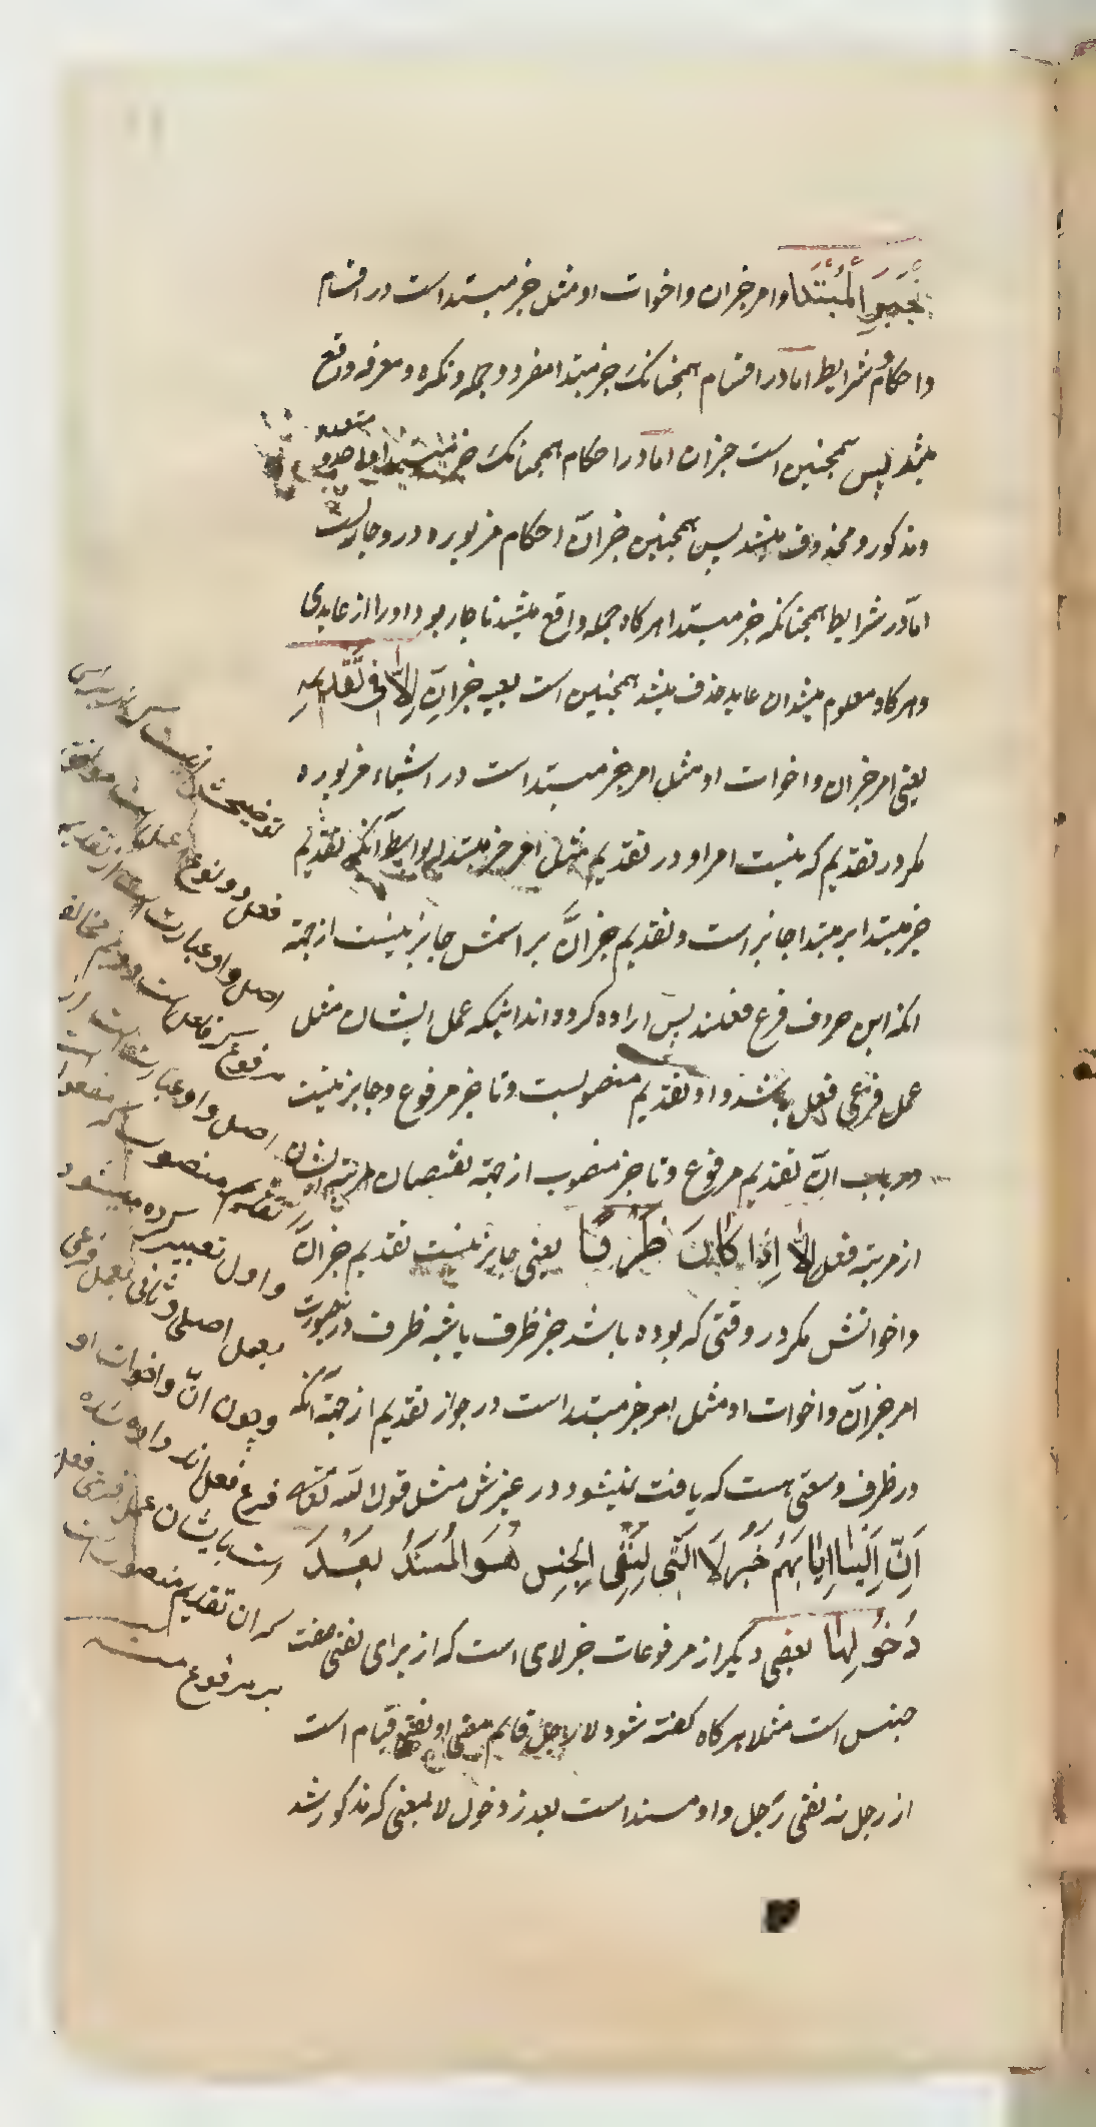 خَبَرِ الْمُبْتَدَا و امر خبر ان و اخوات او مثل خبر مبتداست در اقسام
و احکام و شرایط اما در اقسام همچنانکه خبر مبتدا مفرد و جمله و نکره و معرفه واقع
میشد پس همچنین است خبر ان اما در احکام همچنانکه خبر مبتدا واحد و متعدد
و مذکور و محذوف میشد پس همچنین خبر انّ احکام مزبوره درو جاریست
امّا در شرایط همچنانکه خبر مبتدا هرگاه جمله واقع میشد ناچار بود او را از عایدی
و هرگاه معلوم میشد ان عاید حذف میشد همچنین است بعینه خبر انّ اِلّا فی تَقْدیمِهِ
یعنی امر خبر ان و اخوات او مثل امر خبر مبتداست در اشیاء مزبوره
مکر در تقدیم که نیست امر او در تقدیم مثل امر خبر مبتدا بواسطه آنکه تقدیم
خبر مبتدا بر مبتدا جایز است و تقدیم خبر انَّ بر اسمش جایز نیست از جهة
انکه این حروف فرع فعلند پس اراده کرده اند اینکه عمل ایشان مثل
عمل فرعی فعل باشد و او تقدیم منصوبست و تاخیر مرفوع و جایز نیست
در باب انّ تقدیم مرفوع و تاخیر منصوب از جهة نقصان مرتبه ایشان
از مرتبه فعل اِلّا اِذَا كَانَ ظَرْفًا یعنی جایز نیست تقدیم خبر انَّ
و اخواتش مکر در وقتی که بوده باشد خبر ظرف یا شبه ظرف درینصورت
امر خبر انّ و اخوات او مثل امر خبر مبتداست در جواز تقدیم از جهة آنکه
در ظرف وسعتی هست که یافت نمیشود در غیرش مثل قول الله تعالی
اِنَّ اِلَیْنَا اِیَابَهُمْ خَبَرُ لَا الَّتِی لِنَفْیِ الْجِنْسِ هُوَ الْمُسْنَدُ بَعْدَ
دُخُولِهَا بعضی دیکر از مرفوعات خبر لای است که از برای نفی صفت
جنس است مثلا هرکاه کفته شود لا رجل قایم معنی او نفی قیام است
از رجل نه نفی رجل و او مسند است بعد از دخول لا بمعنی که مذکور شد
توضیحش اینست که از برای
فعل دو نوع عمل است
اصل و او عبارت است از تقدیم
مرفوع که فاعل است و دویم مخالف
اصل و او عبارت است از
تقدیم منصوب که مفعول است
و اول تعبیر کرده میشود
بعمل اصلی و ثانی بعمل فرعی
و چون انّ و اخوات او
فرع فعل اند داده شده
است بایشان عمل فرعی فعل
که ان تقدیم منصوبست
بر مرفوع منه